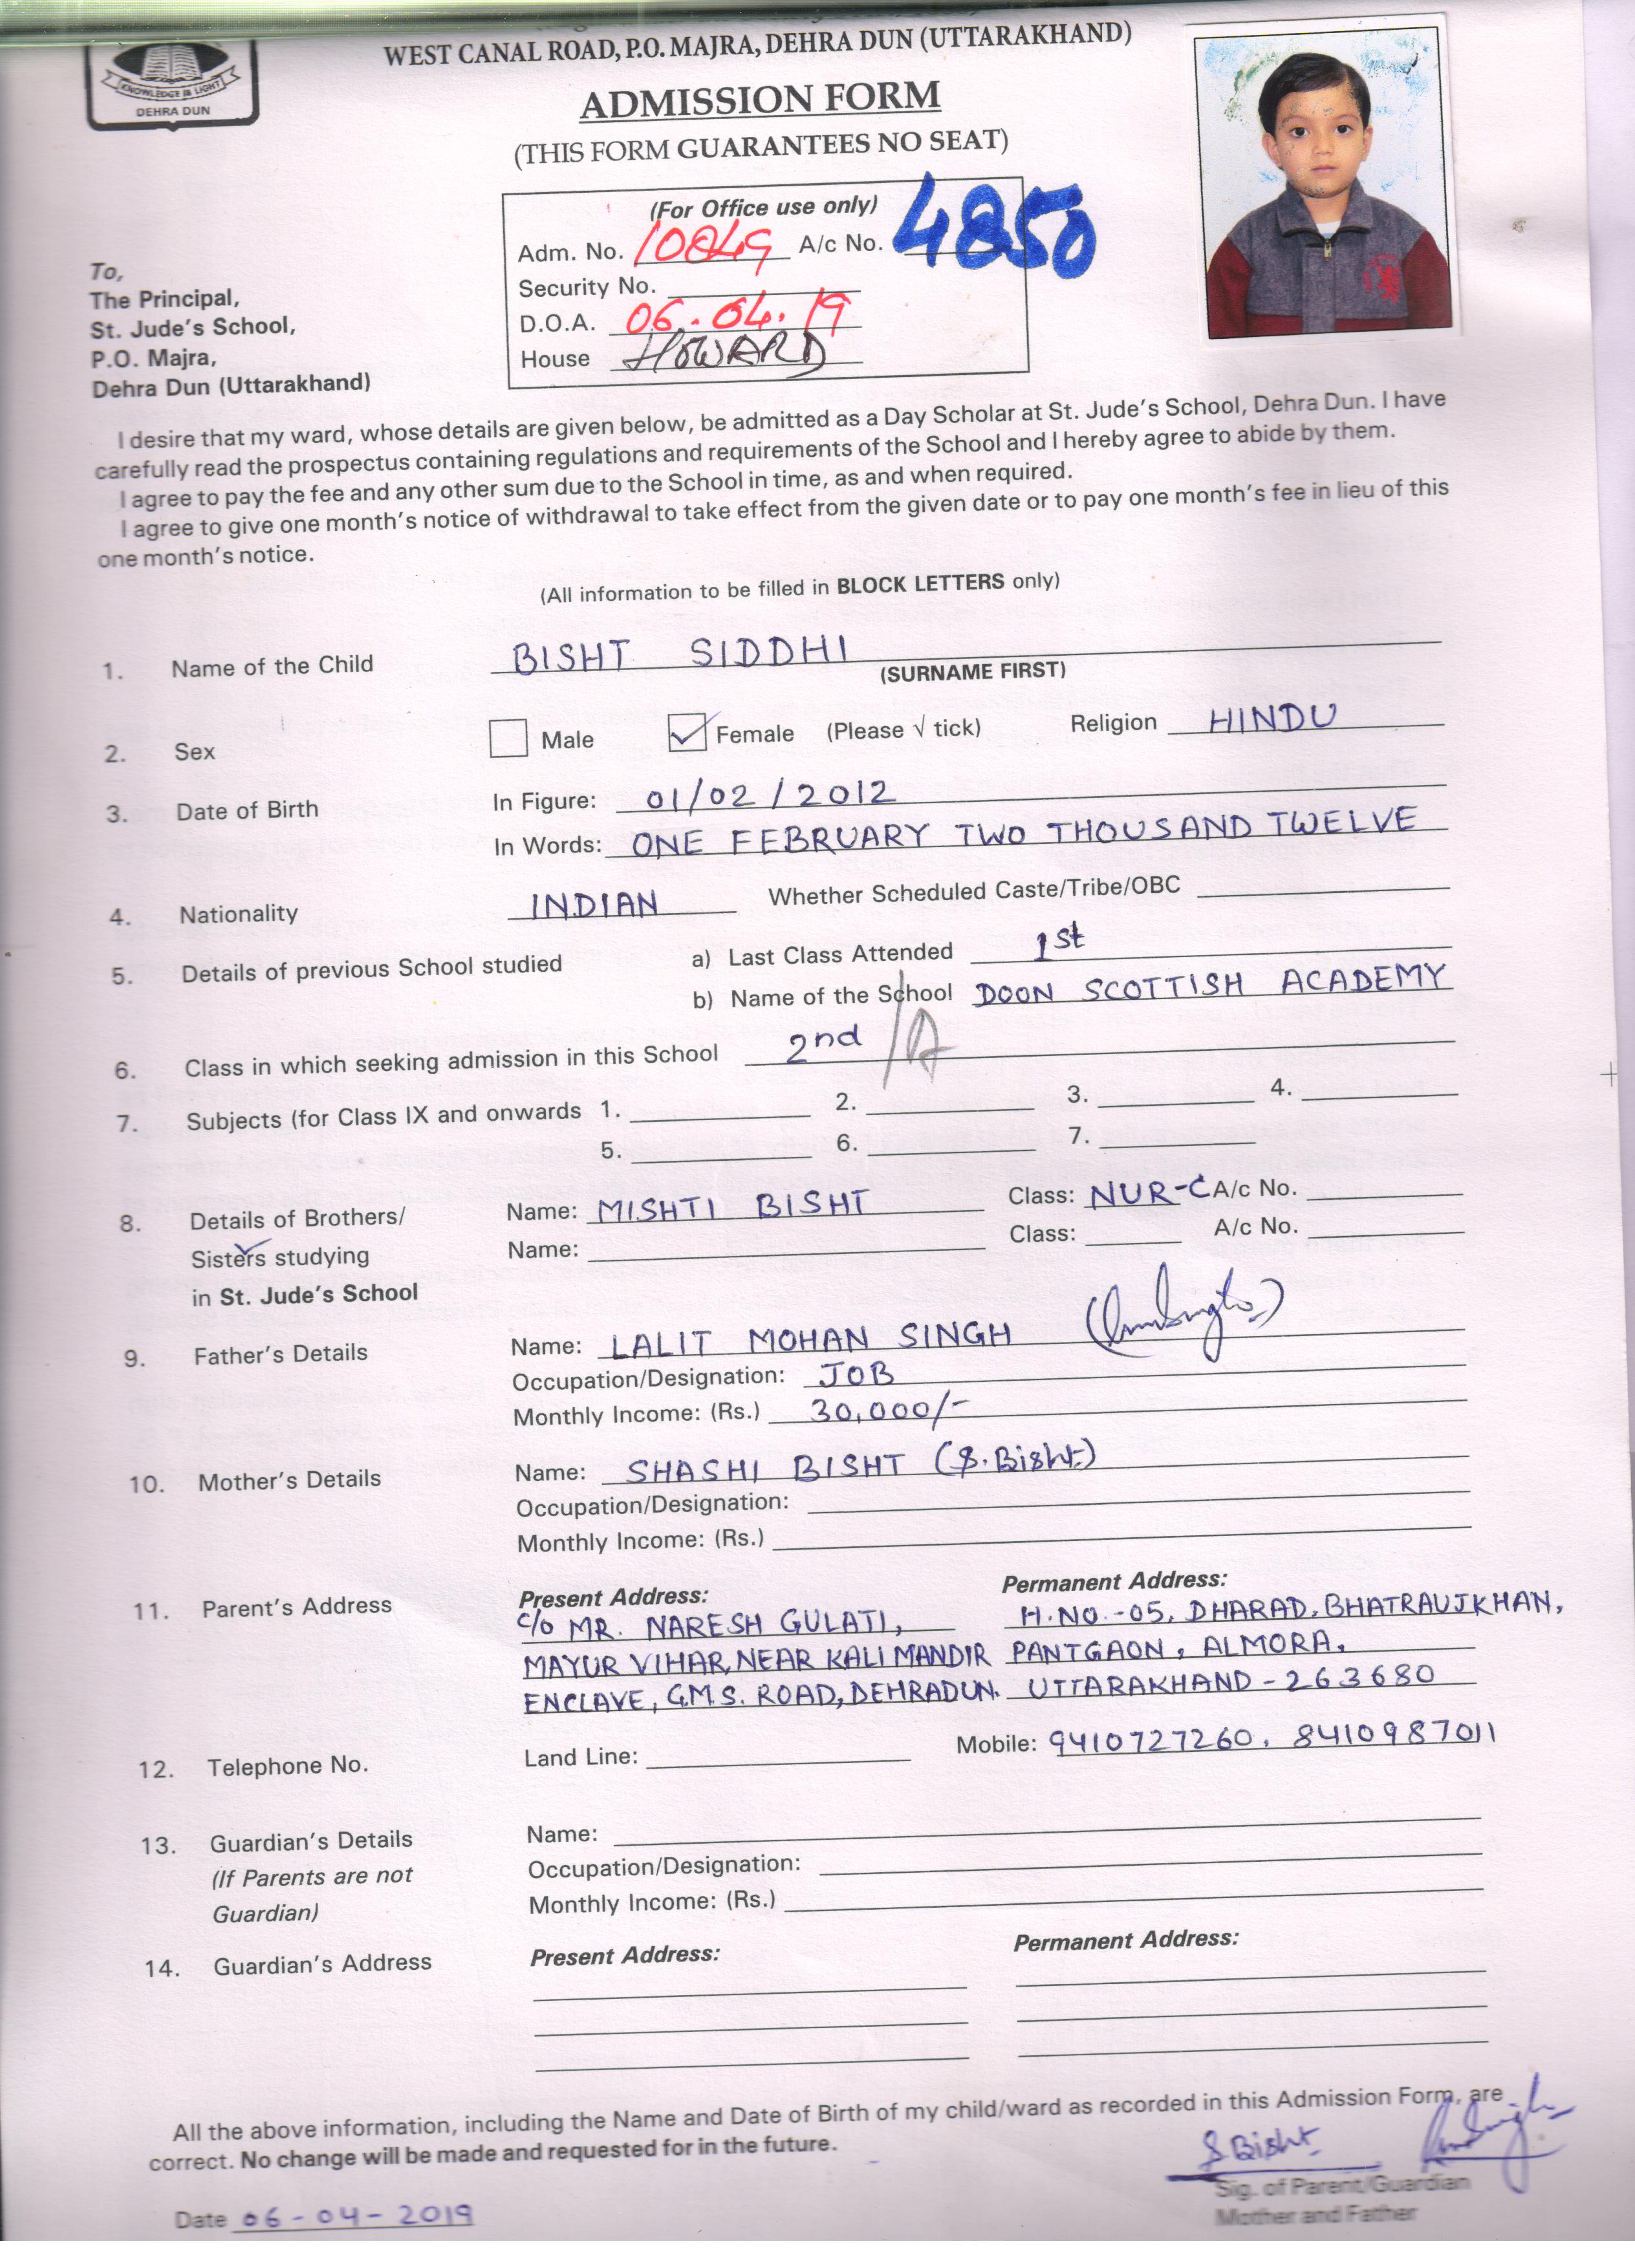 KNOWLEDGE IS LIGHT
DEHRA DUN
WEST CANAL ROAD, P.O. MAJRA, DEHRA DUN (UTTARAKHAND)
ADMISSION FORM
(THIS FORM GUARANTEES NO SEAT)
(For Office use only)
Adm. No. 10849 A/c No. 4850
Security No.
D.O.A. 06.04.19
House HOWARD
To,
The Principal,
St. Jude's School,
P.O. Majra,
Dehra Dun (Uttarakhand)
I desire that my ward, whose details are given below, be admitted as a Day Scholar at St. Jude's School, Dehra Dun. I have
carefully read the prospectus containing regulations and requirements of the School and I hereby agree to abide by them.
I agree to pay the fee and any other sum due to the School in time, as and when required.
I agree to give one month's notice of withdrawal to take effect from the given date or to pay one month's fee in lieu of this
one month's notice.
(All information to be filled in BLOCK LETTERS only)
1. Name of the Child BISHT SIDDHI
(SURNAME FIRST)
2. Sex Male ✓ Female (Please √ tick) Religion HINDU
3. Date of Birth In Figure: 01/02/2012
In Words: ONE FEBRUARY TWO THOUSAND TWELVE
4. Nationality INDIAN Whether Scheduled Caste/Tribe/OBC
5. Details of previous School studied a) Last Class Attended 1st
b) Name of the School DOON SCOTTISH ACADEMY
6. Class in which seeking admission in this School 2nd /A
7. Subjects (for Class IX and onwards 1. 2. 3. 4.
5. 6. 7.
8. Details of Brothers/ Name: MISHTI BISHT Class: NUR-C A/c No.
Sisters studying Name: Class: A/c No.
in St. Jude's School
9. Father's Details Name: LALIT MOHAN SINGH
Occupation/Designation: JOB
Monthly Income: (Rs.) 30,000/-
10. Mother's Details Name: SHASHI BISHT (S.Bisht)
Occupation/Designation:
Monthly Income: (Rs.)
11. Parent's Address Present Address: Permanent Address:
C/o MR. NARESH GULATI, H.NO.-05, DHARAD, BHATRAUJKHAN,
MAYUR VIHAR, NEAR KALI MANDIR PANTGAON, ALMORA,
ENCLAVE, G.M.S. ROAD, DEHRADUN. UTTARAKHAND-263680
12. Telephone No. Land Line: Mobile: 9410727260, 8410987011
13. Guardian's Details Name:
(If Parents are not Occupation/Designation:
Guardian) Monthly Income: (Rs.)
14. Guardian's Address Present Address: Permanent Address:
All the above information, including the Name and Date of Birth of my child/ward as recorded in this Admission Form, are
correct. No change will be made and requested for in the future.
S Bisht
Sig. of Parent/Guardian
Mother and Father
Date 06-04-2019